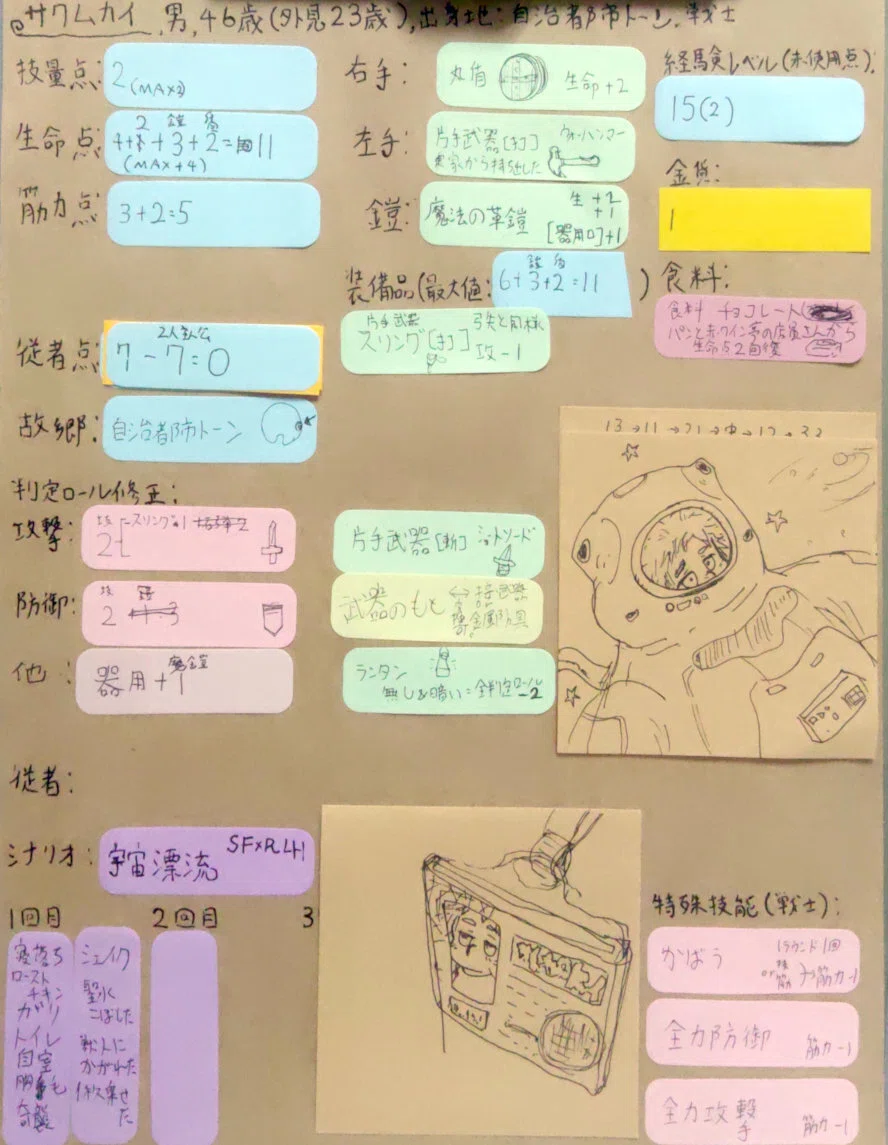 サクムカイ,男,46歳(外見23歳),出身地:自治都市トーン.戦士
技量点:
2(MAX3)
生命点:
2 鎧 盾
+3+2=
11
(MAX+4)
筋力点:
3+2=5
従者点:
2人主人公
7-7=0
故郷:
自治都市トーン
右手:
丸盾 生命+2
左手:
片手武器[打] ウォーハンマー
実家から持ち出した
鎧:
魔法の革鎧
生+2
+1
[器用ロ]+1
装備品(最大値:
鎧 盾
6+3+2=11
)
片手武器 弓矢と同様
スリング[打] 攻-1
経験レベル(未使用点):
15(2)
金貨:
1
食料:
食料 チョコレート
パンと赤ワイン亭の店員さんから
生命点2回復
判定ロール修正:
攻撃:
技
2
スリング-1
防御:
技
2
他:
器用+1
魔鎧
片手武器[斬] ショートソード
武器のもと
ランタン
無し&暗い=全判定ロール-2
13→11→21→中→12→33
従者:
シナリオ:
宇宙漂流 SF×R41
1回目
2回目
3
寝落ち
ロースト
チキン
ガリ
トイレ
自室
奇襲
シェイク
こぼした
かばわれた
特殊技能(戦士):
かばう
1ラウンド1回
筋力-1
全力防御 筋力-1
全力攻撃 筋力-1